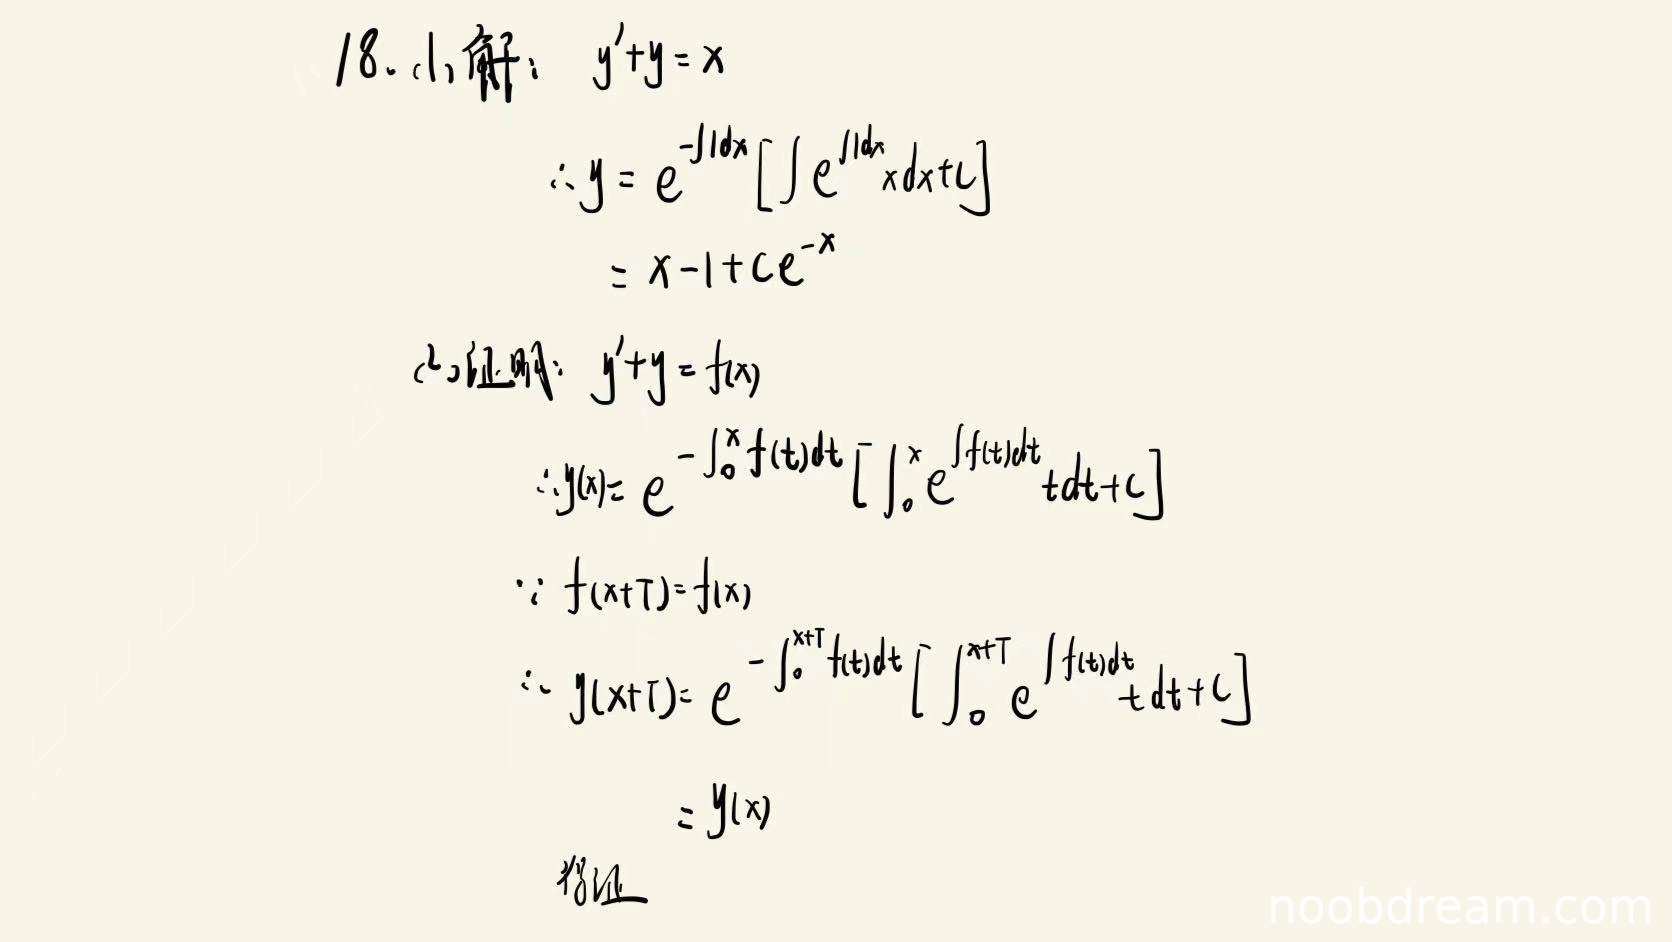 18. (1) 解: y'+y=x
∴ y = e^{-∫1dx} [∫ e^{∫1dx} x dx+C]
= x-1+Ce^{-x}
(2) 证明: y'+y=f(x)
∴ y(x)= e^{-∫_0^x f(t)dt} [∫_0^x e^{∫f(t)dt} t dt+C]
∵ f(x+T)=f(x)
∴ y(x+T)= e^{-∫_0^{x+T} f(t)dt} [∫_0^{x+T} e^{∫f(t)dt} t dt+C]
= y(x)
得证
noobdream.com